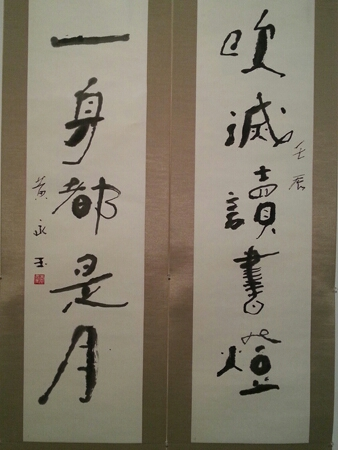 吹滅讀書燈
壬辰
一身都是月
黃永玉